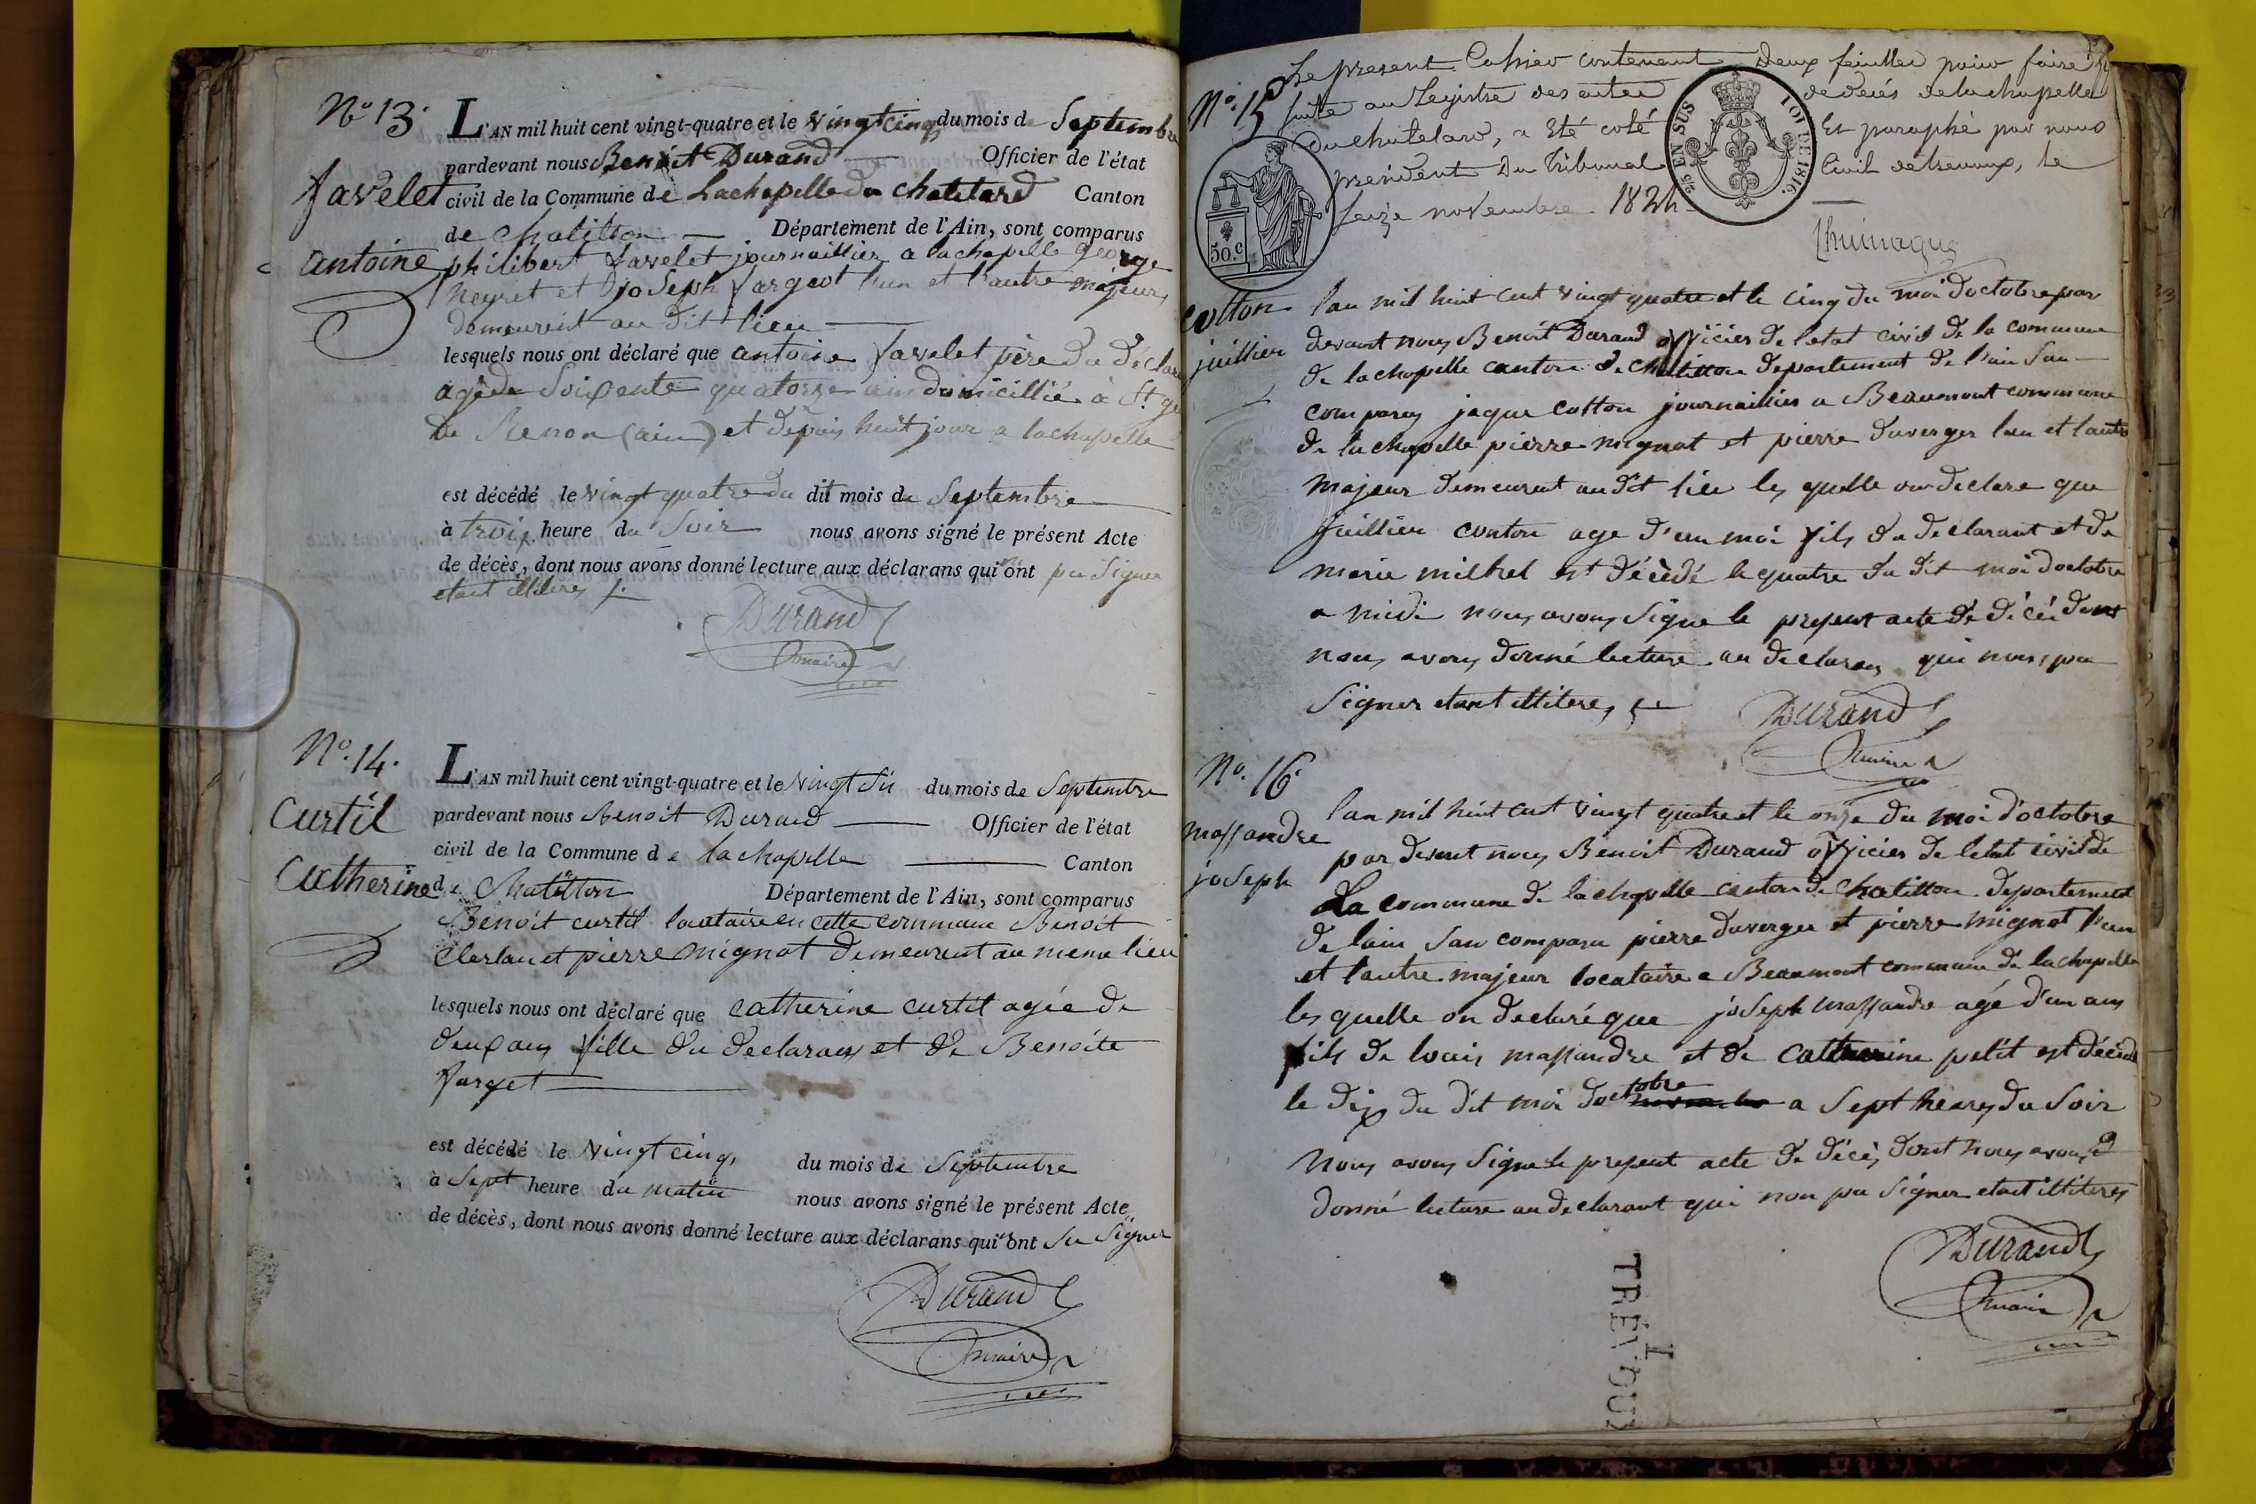 No 13.
favelet
antoine
L'AN mil huit cent vingt-quatre et le vingt cinq du mois de Septembre
pardevant nous Benoit Durand Officier de l'état
civil de la Commune de Lachapelle du chatelard Canton
de Chatillon Département de l'Ain, sont comparus
philibert favelet journaillier a lachapelle george
neyret et joseph fargeot l'un et l'autre majeurs
demeurent au dit lieu
lesquels nous ont déclaré que antoine favelet père du déclar
agé de Soixente quatorze ans domicillié à St. ge
de Renon (ain) et depuis huit jour a lachapelle
est décédé le vingt quatre du dit mois de Septembre
à trois heure du Soir nous avons signé le présent Acte
de décès, dont nous avons donné lecture aux déclarans qui n'ont pu Signer
etant illiteres
Durand
maire
No. 14.
Curtil
Catherine
L'AN mil huit cent vingt-quatre et le vingt Six du mois de Septembre
pardevant nous Benoit Durand Officier de l'état
civil de la Commune de la chapelle Canton
de Chatillon Département de l'Ain, sont comparus
Benoit curtil locataire en cette commune Benoit
et pierre mignot demeurent au meme lieu
lesquels nous ont déclaré que catherine curtil agée de
deux ans fille du declarans et de Benoite
farget
est décédé le vingt cinq, du mois de Septembre
à Sept heure du matin nous avons signé le présent Acte
de décès, dont nous avons donné lecture aux déclarans qui n'ont Su Signer
Durand
maire
Le present Cahier contenant Deux feuilles pour faire
suite au Registre des actes de décés de la chapelle
du chatelard, a Eté coté Et paraphé par nous
president Du Tribunal Civil de trevoux, le
seize novembre 1824
25c EN SUS
LOI DE 1816.
50.c
No. 15
cotton
juillien
l'an mil huit cent vingt quatre et le cinq du moi d'octobre par
devant nous Benoit Durand officier de letat civil de la commune
de la chapelle canton de chatillon departement de l'ain Son
comparus jaque cotton journaillier a Beaumont commune
de la chapelle pierre mignot et pierre duverger lun et lautre
majeur demeurent au dit lieu les quelle on declare que
juillien cotton age d'un moi fils du declarant et de
marie milhel est décédé le quatre du dit moi doctobre
a midi nous avons Signe le present acte de décéi dont
nous avons donné lecture au declarans qui nons pu
Signer etant illiteres
Durand
maire
No. 16
massandre
joseph
l'an mil huit cent vingt quatre et le onze du moi d'octobre
par devent nous Benoit Durand officier de letat civil de
La commune de la chapelle canton de chatillon departement
de lain Son comparu pierre duverger et pierre mignot l'un
et l'autre majeur locataire a Beaumont commune de la chapelle
les quelle on declaré que joseph massandre agé d'un ans
fils de louis massandre et de catherine petit est décédé
le dix du dit moi doctobre a Sept heures du Soir
Nous avons Signe le present acte de décès dont nous avons
donné lecture au declarant qui non pu Signer etant illiteres
Durand
maire
TREVOUX